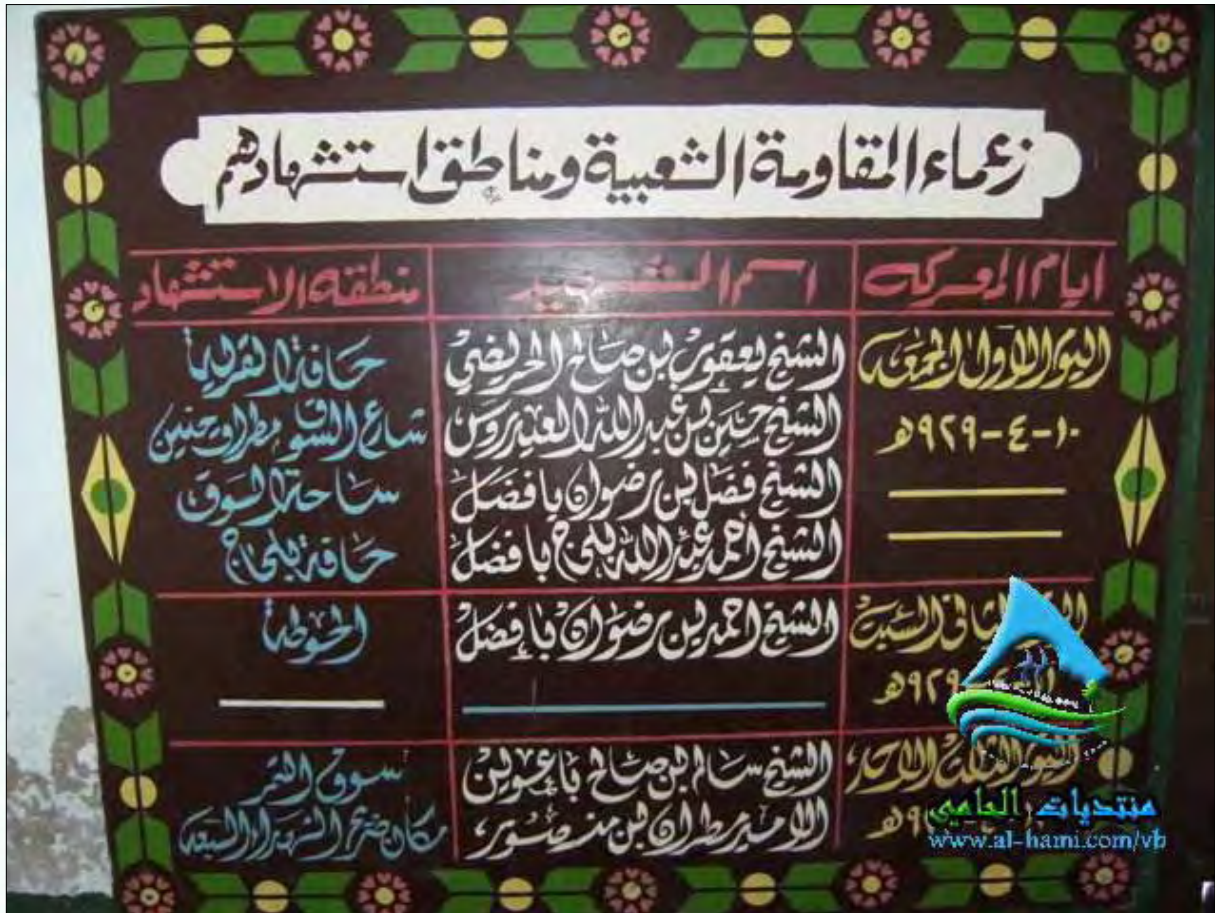 زعماء المقاومة الشعبية ومناطق استشهادهم
ايام المعركه اسم الشهيد منطقة الاستشهاد
اليوم الاول الجمعه الشيخ يعقوب بن صالح الحريضي حافة القرية
١٠-٤-٩٢٩هـ الشيخ حسين بن عبدالله العيدروس شارع السوق مطراو حنين
الشيخ فضل بن رضوان بافضل ساحة السوق
الشيخ احمد عبدالله بلحاج بافضل حافة بلحاج
الثاني السبت الشيخ احمد بن رضوان بافضل الحوطة
٩٢٩هـ
اليوم الثالث الاحد الشيخ سالم بن صالح باعوين سوق التمر
الامير مطران بن منصور مكان ضريح الشهداء السبعه
منتديات الحامي
www.al-hami.com/vb